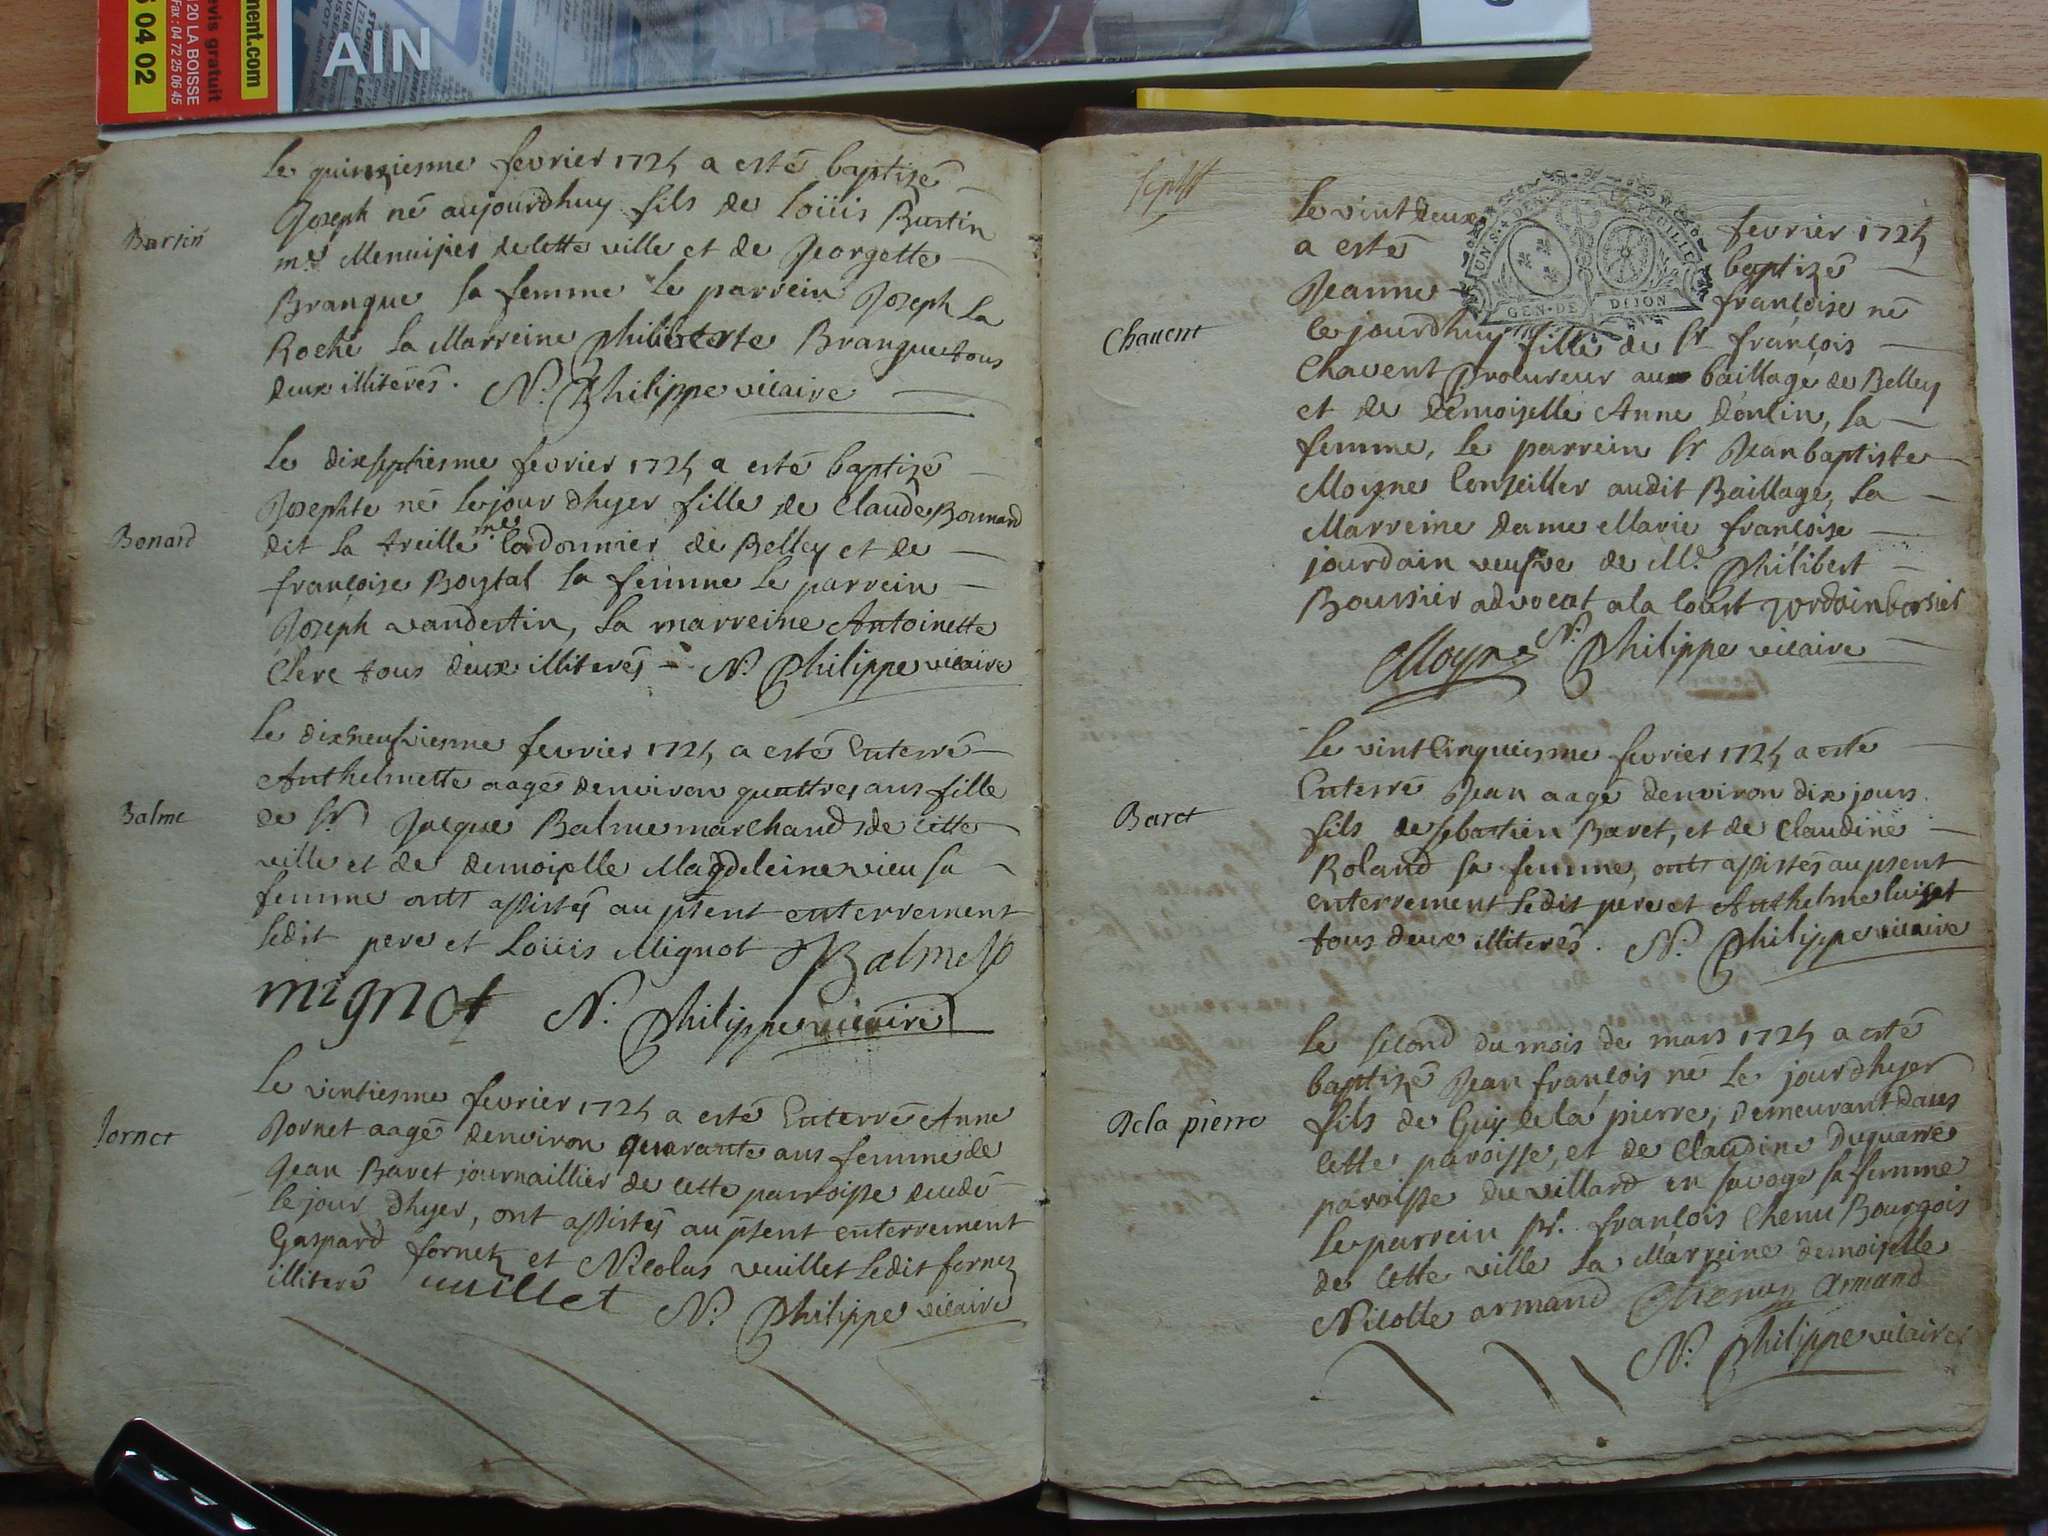 ment.com
evis gratuit
120 LA BOISSE
Fax : 04 72 25 06 45
04 02
AIN
Le quinziesme fevrier 1725 a esté baptizé
Joseph né aujourdhuy fils de Loüis Burtin
mre Menuisier de cette ville et de Georgette
Brangue sa femme le parrein Joseph La
Roche la Marreine Philiberte Brangue tous
deux illiterés. N. Philippe vicaire
Burtin
Le dixseptiesme fevrier 1725 a esté baptizé
Josephte né le jour dhyer fille de Claude Bonnard
dit la treille me Cordonnier de Belley et de
françoise Boystal sa femme le parrein
Joseph vandertin, la marreine Antoinette
Clerc tous deux illiterés N. Philippe vicaire
Bonard
Le dixneufviesme fevrier 1725 a esté Enterré
Anthelmette aagé denviron quattres ans fille
de Sr. Jacque Balme marchand de cette
ville et de demoiselle Magdeleine vieu sa
femme ont assistés au psent enterrement
ledit pere et Loüis Mignot Balme
mignot N. Philippe vicaire
Balme
Le vintiesme fevrier 1725 a esté Enterré Anne
Jornet aagé denviron quarante ans femme de
Jean Baret journaillier de cette parroisse decedé
le jour dhyer, ont assistés au psent enterrement
Gaspard fornet et Nicolas vuillet ledit fornet
illiteré vuillet N. Philippe vicaire
Jornet
Le vint deux fevrier 1725
a esté baptizé
Jeanne françoise né
GEN · DE DIJON
ce jourdhuy fille de Sr françois
Chavent procureur au baillage de Belley
et de demoiselle Anne donlin, sa
femme, le parrein Sr Jean baptiste
Moyne Conseiller audit Baillage, la
Marreine dame Marie françoise
jourdain veufve de Mr. Philibert
Boursier advocat a la Court Jordain borsier
Moyne N. Philippe vicaire
Chavent
Le vint Cinqueisme fevrier 1725 a esté
Enterré Jean aagé denviron dix jours
fils de sebastien Baret, et de Claudine
Roland sa femme, ont assistés au psent
enterrement ledit pere et Anthelme luiset
tous deux illiterés. N. Philippe vicaire
Baret
Le second du mois de mars 1725 a esté
baptizé Jean françois né le jour dhyer
fils de Guy de la pierre, demeurant dans
cette paroisse, et de Claudine Duquarré
paroisse du villard en savoye sa femme
le parrein sr. françois Chenu Bourgois
de cette ville la Marreine demoiselle
Nicolle armand Chenu Armand
N. Philippe vicaire
De la pierre